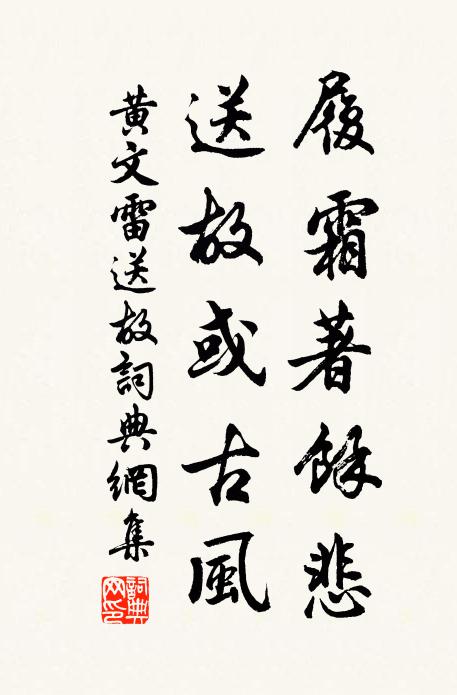 履霜著餘悲
送故或古風
黃文雷送故詞典網集
詞典網印